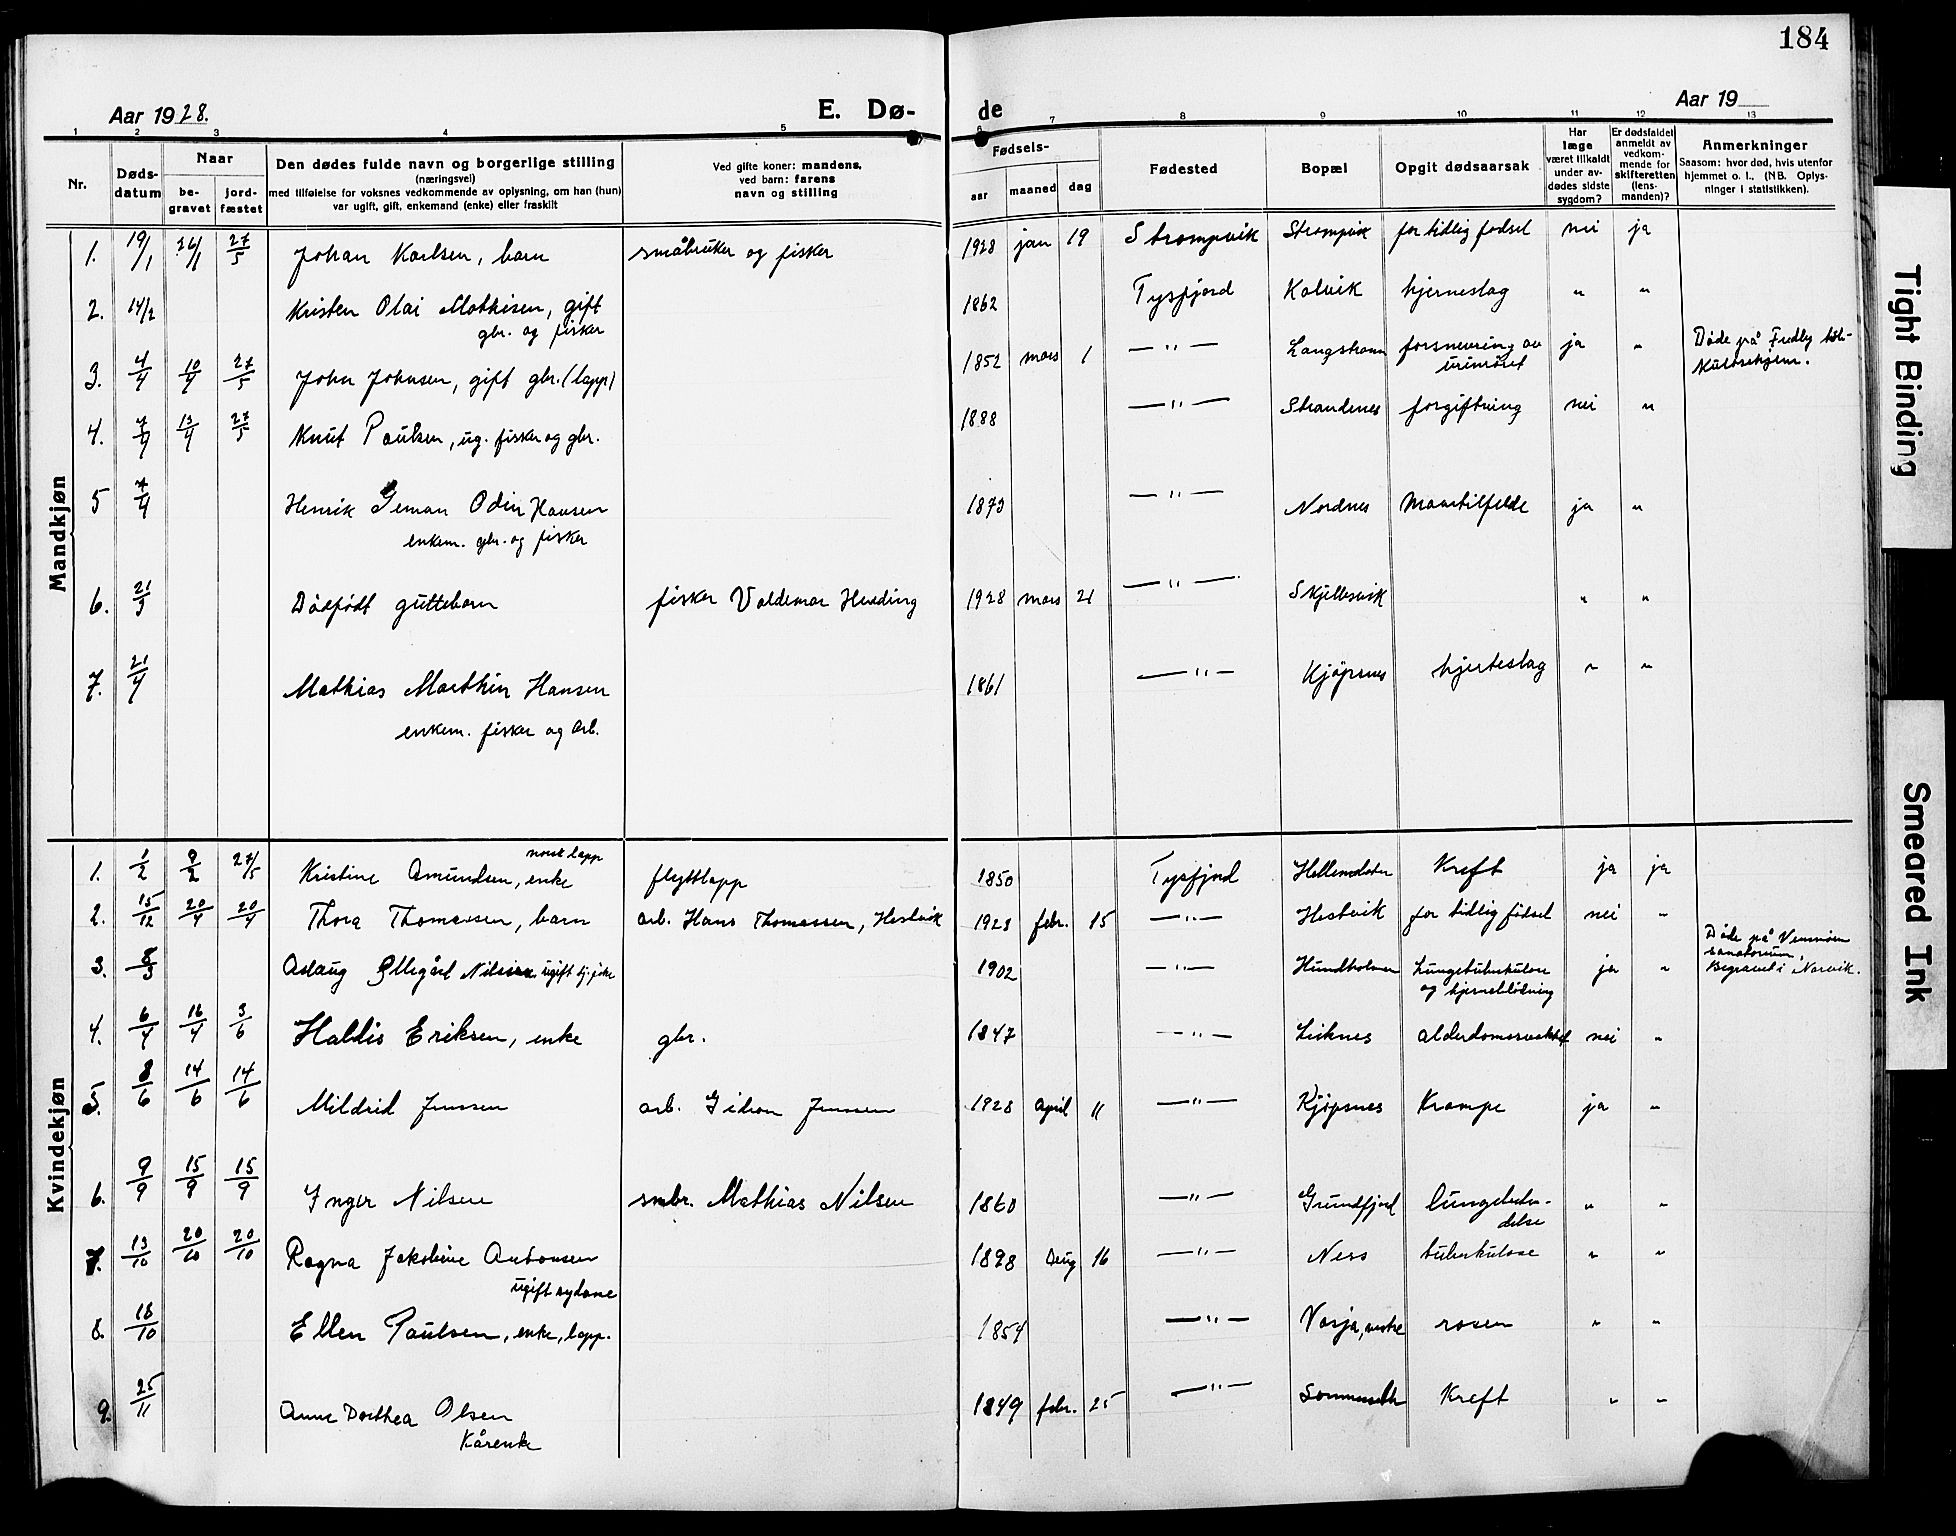 184
Aar 1928.
E. Dø-
de
Aar 19
1 2 3 4 5 6 7 8 9 10 11 12 13
Nr.
Døds-
datum
Naar
be-
gravet
jord-
fæstet
Den dødes fulde navn og borgerlige stilling
(næringsvei)
med tilføielse for voksnes vedkommende av oplysning, om han (hun)
var ugift, gift, enkemand (enke) eller fraskilt
Ved gifte koner: mandens,
ved barn: farens
navn og stilling
Fødsels-
aar
maaned
dag
Fødested
Bopæl
Opgit dødsaarsak
Har
læge
været tilkaldt
under av-
dødes sidste
sygdom?
Er dødsfaldet
anmeldt av
vedkom-
mende for
skifteretten
(lens-
manden)?
Anmerkninger
Saasom: hvor død, hvis utenfor
hjemmet o. l., (NB. Oplys-
ninger i statistikken).
Mandkjøn
1. 19/1 26/1 27/5 Johan Karlsen, barn småbruker og fisker 1928 jan 19 Strompvik Strompvik for tidlig fødsel nei ja
2. 14/2 Kristen Olai Mathisen, gift 1862 Tysfjord Kalvik hjerneslag " "
gbr. og fisker
3. 4/4 10/4 27/5 John Johnsen, gift gbr. (lapp) 1852 mars 1 — " — forsnevring av ja "
urinrøret
Døde på Fredly tub-
kulosehjem.
4. 7/4 13/4 27/5 Knut Paulsen, ug. fisker og gbr. 1888 — " — Strandenes forgiftning nei "
5 7/4 Henrik German Odin Hansen 1873 — " — Nordnes ja "
enkem. gbr. og fisker
6. 21/3 Dødfødt guttebarn fisker Valdemar Herding 1928 mars 21 — " — Skjellesvik " "
7. 21/4 Mathias Marthin Hansen 1861 — " — Kjøpsnes hjerteslag " "
enkem. fisker og arb.
Kvindekjøn
norsk lapp
1. 1/2 9/2 27/5 Kristine Amundsen, enke flyttlapp 1850 Tysfjord Kreft ja ja
2. 15/12 20/4 20/4 Thora Thomassen, barn arb. Hans Thomassen, Hestvik 1923 febr. 15 — " — Hestvik for tidlig fødsel nei "
3. 8/3 Aslaug Ellegård Nilsen ugift tj.pike 1902 — " — Hundholmen Lungetuberkulose ja "
og hjerneblødning
Døde på
sanatorium,
Begravet i Narvik.
4. 6/4 16/4 3/6 Haldis Eriksen, enke gbr. 1847 — " — Liknes alderdomssvakhet nei "
5. 8/6 14/6 14/6 Mildrid Jenssen arb. Gideon Jenssen 1928 april 11 — " — Kjøpsnes Krampe ja "
6. 9/9 15/9 15/9 Inger Nilsen smbr. Mathias Nilsen 1860 — " — Grundfjord lungebeten-
delse " "
7. 13/10 20/10 20/10 Ragna Jakobine Antonsen 1898 aug 16 — " — Ness tuberkulose " "
ugift sydame
8. 18/10 Ellen Paulsen, enke, lapp. 1854 — " — rosen " "
9. 25/11 Anne Dorthea Olsen 1849 febr. 25 — " — Kreft " "
Kårenke
Tight Binding
Smeared Ink